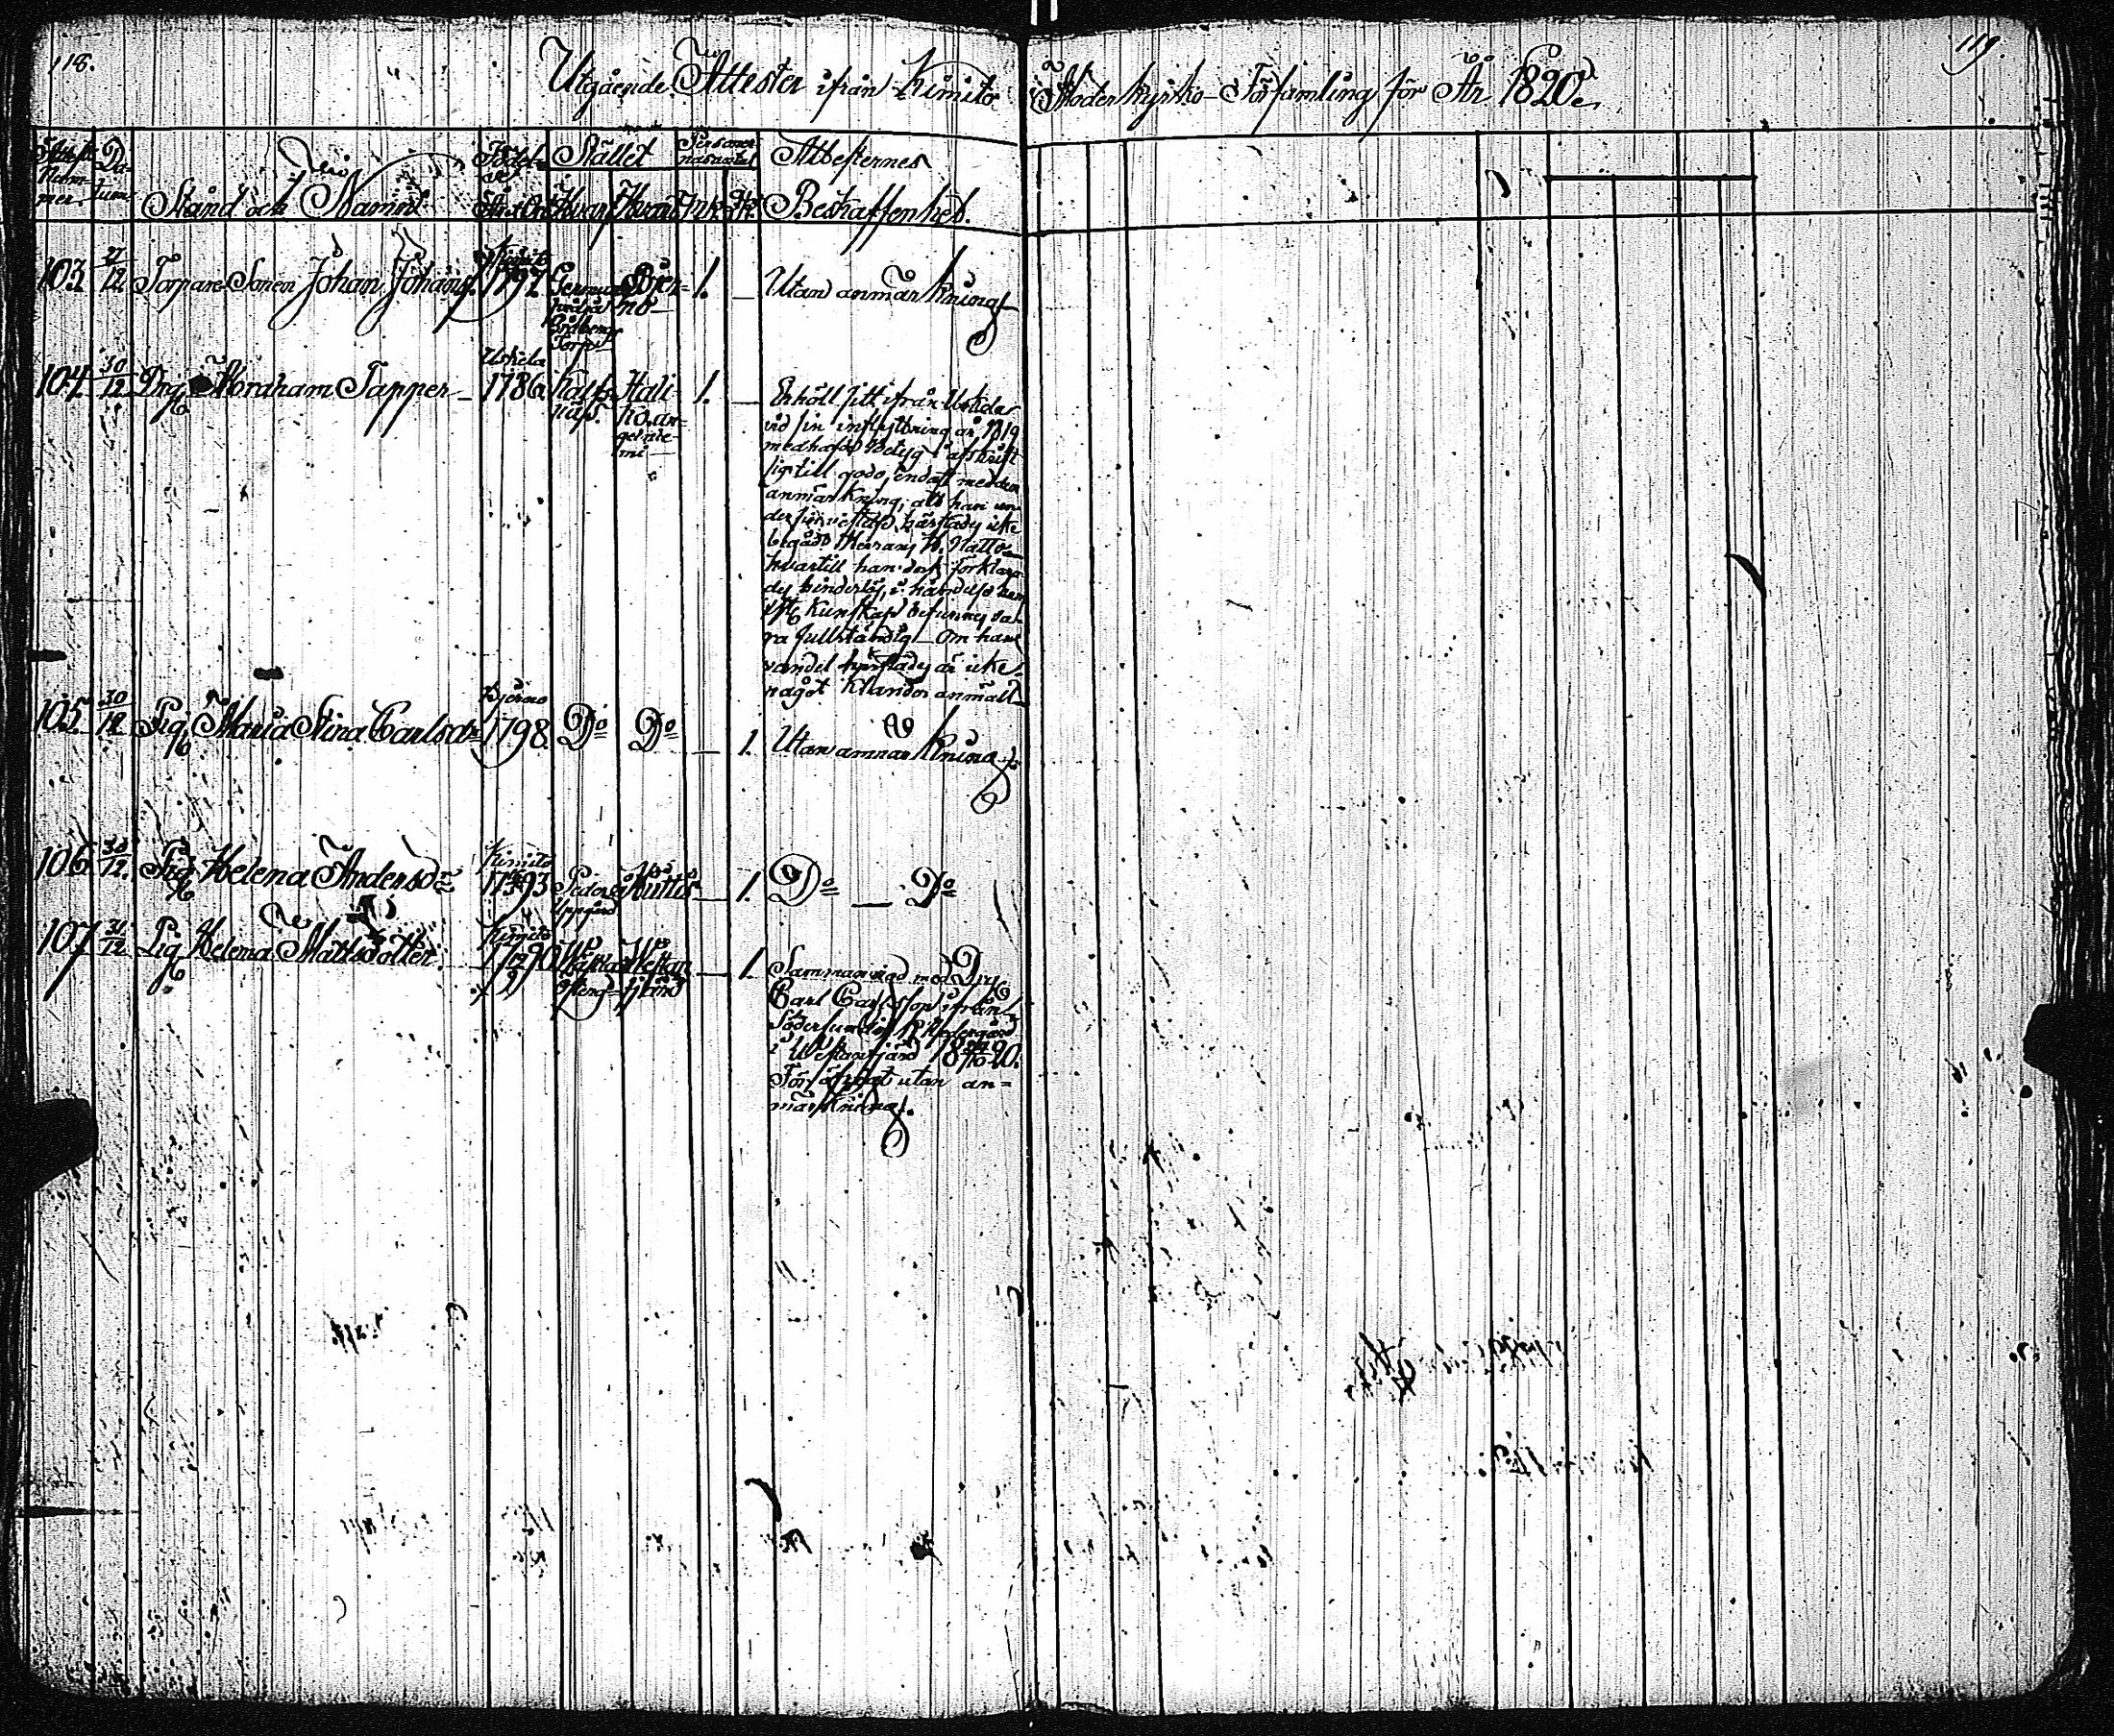 118.
119.
Utgående Attester ifrån Kimito Moderkyrko-Församling för År 1820.
Attest Nummer. Datum. Stånd och Namn Födelse År Ort Stället Hvarifrån Hvart Personernas antal Mk. Qk. Attesternes Beskaffenhet.
103. 12 Torpare Sonen Johan Johanss. Kimito 1797. Torp Bjerno 1. — Utan anmärkning
104. 30/12 Drg Abraham Tapper — Uskela 1786. Halikko 1. — Erhöll sitt ifrån Uskela
vid sin inflyttning år 1819
medhafde Betyg i afskrift
sig till godo, endast med den
anmärkning, att han un-
der sin vistelse härstädes icke
begådt Herrans H. Nattv.
hvartill han dock förklara-
des hinderlös,
kunskap befinnes va-
ra fullständig — Om hans
vandel härstädes är icke
något klander anmält
105. 30/12 Pig Maria Stina Carlsdr Bjerno 1798. Do Do — 1. Utan anmärkning
106. 30/12. Pig Helena Andersdr Kimito 1793 Uppgård — 1. Do — Do
107 31/12 Pig Helena Mattsdotter. Kimito 1790 Westanfjärd — 1. Sammanvigd med Drg
Carl Carlsson ifrån
Södersundvik Nedergård
i Westanfjärd 1820.
För öfrigt utan an-
märkning.